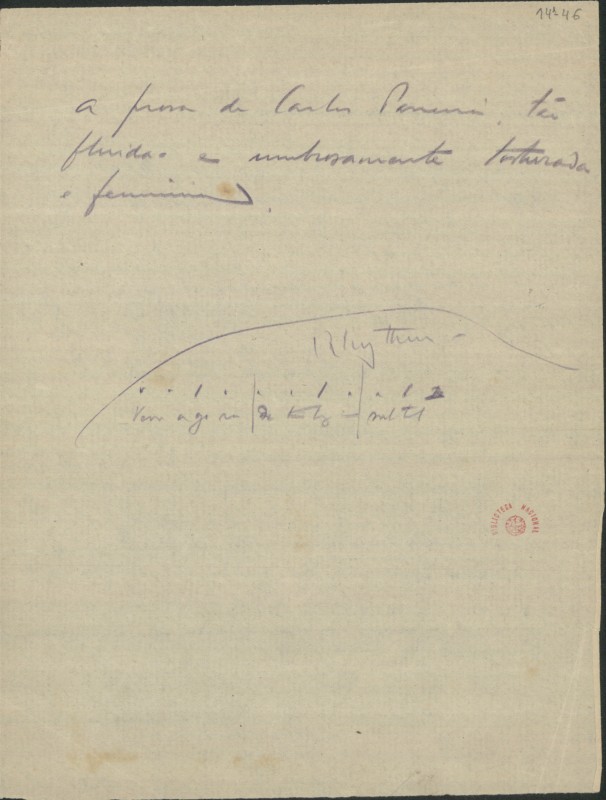 14²-46
a prosa de Carlos Parreira, tão
fluida e umbrosamente torturada
e feminina.
Rhythm
Vem agora
BIBLIOTECA NACIONAL